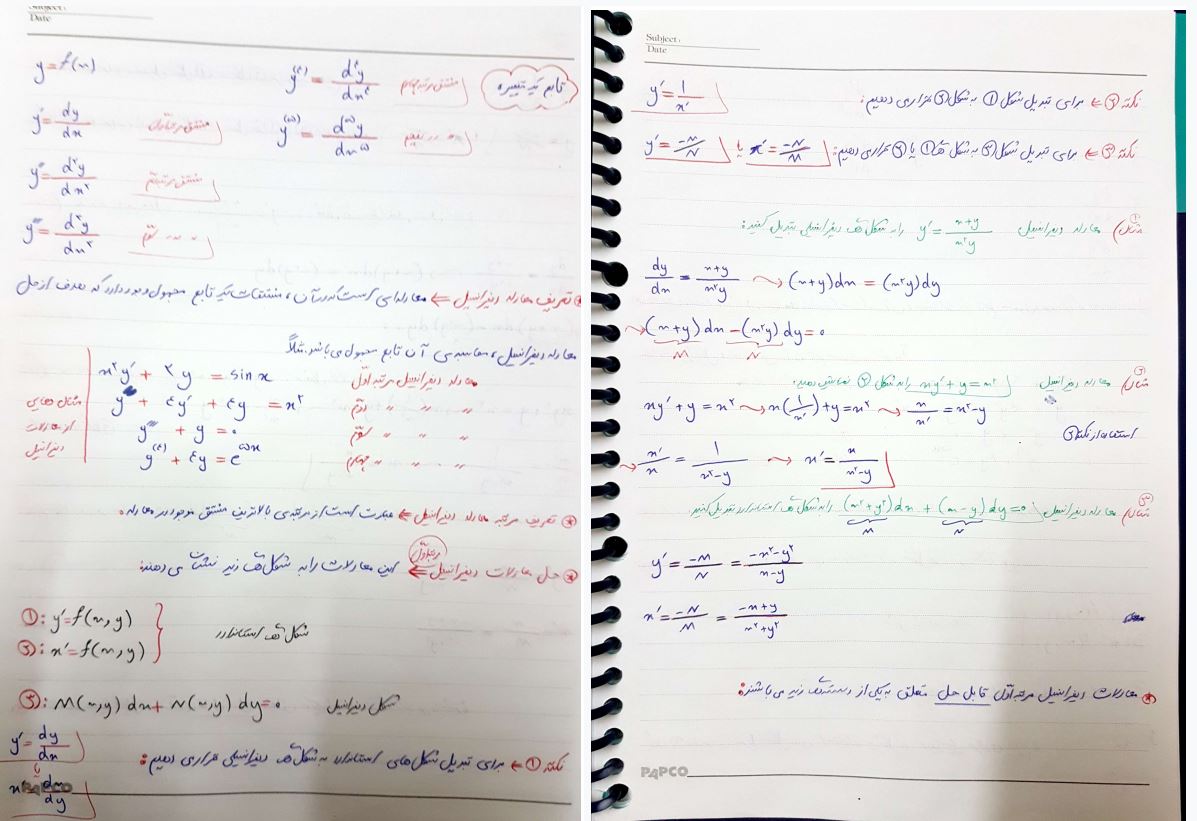 Subject:
Date
تابع یک متغیره
y = f(x)
y⁽⁴⁾ = d⁴y/dx⁴ مشتق مرتبه چهارم
y' = dy/dx مشتق مرتبه اول
y⁽⁵⁾ = d⁵y/dx⁵ " " پنجم
y'' = d²y/dx² مشتق مرتبه دوم
y''' = d³y/dx³ " " سوم
* تعریف معادله دیفرانسیل ⇐ معادله‌ای است که در آن، مشتقات یک تابع مجهول وجود دارد که هدف از حل
معادله دیفرانسیل، محاسبه‌ی آن تابع مجهول می‌باشد. مثلاً
مثال‌هایی از معادلات دیفرانسیل
x²y' + 2y = sin x معادله دیفرانسیل مرتبه اول
y'' + 4y' + 4y = x² " " " دوم
y''' + y = 0 " " " سوم
y⁽⁴⁾ + 4y = e^{5x} " " " چهارم
* تعریف مرتبه معادله دیفرانسیل ⇐ عبارت است از مرتبه‌ی بالاترین مشتق موجود در معادله.
* حل معادلات دیفرانسیل مرتبه اول ⇐ این معادلات را به شکل‌های زیر نشان می‌دهند:
①: y' = f(x, y)
②: x' = f(x, y)
شکل‌های استاندارد
③: M(x, y) dx + N(x, y) dy = 0 شکل دیفرانسیل
نکته ① ⇐ برای تبدیل شکل‌های استاندارد به شکل‌های دیفرانسیلی قرار می‌دهیم:
y' = dy/dx
یا
x' = dx/dy
PAPCO
Subject:
Date
نکته ② ⇐ برای تبدیل شکل ① به شکل ② قرار می‌دهیم: y' = 1/x'
نکته ③ ⇐ برای تبدیل شکل ③ به شکل‌های ① یا ② قرار می‌دهیم: x' = -N/M یا y' = -M/N
مثال ①) معادله دیفرانسیل y' = (x+y)/(x²y) را به شکل‌های دیفرانسیلی تبدیل کنید:
dy/dx = (x+y)/(x²y) ⇝ (x+y)dx = (x²y)dy
⇝ (x+y) dx - (x²y) dy = 0
M N
مثال ②) معادله دیفرانسیل xy' + y = x² را به شکل ② نمایش دهیم.
xy' + y = x² ⇝ x(1/x') + y = x² ⇝ x/x' = x² - y
استفاده از نکته ②
⇝ x'/x = 1/(x²-y) ⇝ x' = x/(x²-y)
مثال ③) معادله دیفرانسیل (x²+y²)dx + (x-y)dy = 0 را به شکل‌های استاندارد تبدیل کنید
M N
y' = -M/N = (-x²-y²)/(x-y)
x' = -N/M = (-x+y)/(x²+y²)
* معادلات دیفرانسیل مرتبه اول قابل حل متعلق به یکی از دسته‌های زیر می‌باشند:
PAPCO